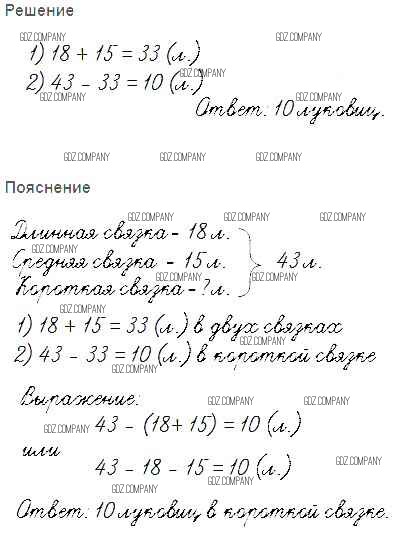 Решение
GDZ.COMPANY GDZ.COMPANY
1) 18 + 15 = 33 (л.)
GDZ.COMPANY
2) 43 - 33 = 10 (л.)
GDZ.COMPANY GDZ.COMPANY
Ответ: 10 луковиц.
GDZ.COMPANY GDZ.COMPANY GDZ.COMPANY
Пояснение
GDZ.COMPANY GDZ.COMPANY GDZ.COMPANY
Длинная связка - 18 л.
GDZ.COMPANY
Средняя связка - 15 л. 43 л.
GDZ.COMPANY GDZ.COMPANY
Короткая связка - ? л.
GDZ.COMPANY
1) 18 + 15 = 33 (л.) в двух связках
GDZ.COMPANY
2) 43 - 33 = 10 (л.) в короткой связке
GDZ.COMPANY
Выражение:
GDZ.COMPANY GDZ.COMPANY
GDZ.COMPANY 43 - (18 + 15) = 10 (л.)
или
GDZ.COMPANY GDZ.COMPANY
43 - 18 - 15 = 10 (л.)
GDZ.COMPANY GDZ.COMPANY
Ответ: 10 луковиц в короткой связке.